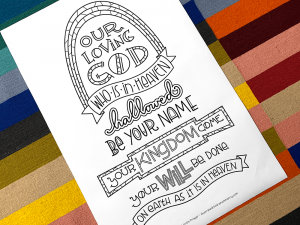 OUR
LOVING
GOD
WHO IS IN HEAVEN
hallowed
BE YOUR NAME
YOUR KINGDOM COME
YOUR WILL BE DONE
ON EARTH AS IT IS IN HEAVEN